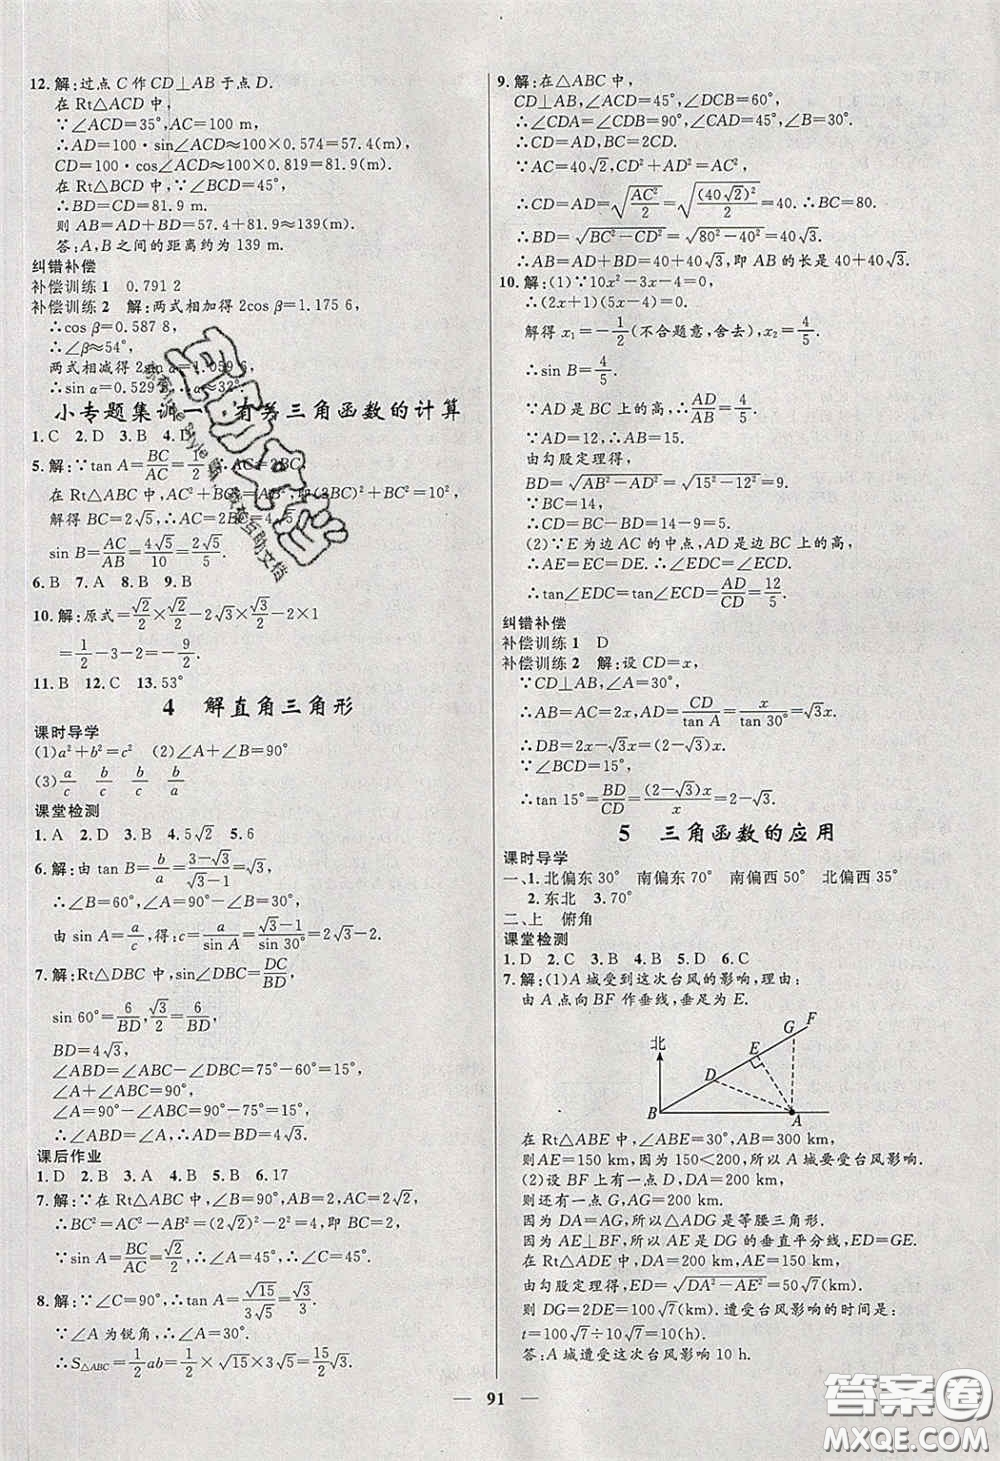 12. 解:过点 C 作 CD⊥AB 于点 D.
在 Rt△ACD 中,
∵∠ACD=35°,AC=100 m,
∴AD=100·sin∠ACD≈100×0.574=57.4(m),
CD=100·cos∠ACD≈100×0.819=81.9(m).
在 Rt△BCD 中,∵∠BCD=45°,
∴BD=CD=81.9 m.
则 AB=AD+BD=57.4+81.9≈139(m).
答:A,B 之间的距离约为 139 m.
纠错补偿
补偿训练 1 0.791 2
补偿训练 2 解:两式相加得 2cos β=1.175 6,
∴cos β=0.587 8,
∴∠β≈54°,
两式相减得 2sin α=1.059 6,
∴sin α=0.529 8,∴∠α≈32°.
小专题集训一 有关三角函数的计算
1.C 2.D 3.B 4.D
5. 解:∵tan A=BC/AC=1/2,∴AC=2BC,
在 Rt△ABC 中,AC²+BC²=AB²,即(2BC)²+BC²=10²,
解得 BC=2√5,∴AC=4√5,
sin B=AC/AB=4√5/10=2√5/5.
6.B 7.A 8.B 9.B
10. 解:原式=√2/2×√2/2-2√3×√3/2-2×1
=1/2-3-2=-9/2.
11.B 12.C 13.53°
4 解直角三角形
课时导学
(1)a²+b²=c² (2)∠A+∠B=90°
(3)a/c b/c a/b b/c a/c b/a
课堂检测
1.A 2.D 3.B 4.5√2 5.6
6. 解:由 tan B=b/a=(3-√3)/(√3-1)=√3,
∴∠B=60°,∠A=90°-∠B=30°,
由 sin A=a/c,得:c=a/sin A=(√3-1)/sin 30°=2√3-2.
7. 解:Rt△DBC 中,sin∠DBC=DC/BD,
sin 60°=6/BD,√3/2=6/BD,
BD=4√3,
∠ABD=∠ABC-∠DBC=75°-60°=15°,
∠A+∠ABC=90°,
∠A=90°-∠ABC=90°-75°=15°,
∴∠ABD=∠A,∴AD=BD=4√3.
课后作业
1.D 2.B 3.A 4.B 5.2√3 6.17
7. 解:∵在 Rt△ABC 中,∠B=90°,AB=2,AC=2√2,
∴BC²=AC²-AB²=(2√2)²-2²=4,即 BC=2,
∵sin A=BC/AC=√2/2,∴∠A=45°,∴∠C=45°.
8. 解:∵∠C=90°,∴tan A=√15/3√5=√3/3,
∵∠A 为锐角,∴∠A=30°.
∴S△ABC=1/2ab=1/2×√15×3√5=15/2√3.
9. 解:在△ABC 中,
CD⊥AB,∠ACD=45°,∠DCB=60°,
∴∠CDA=∠CDB=90°,∠CAD=45°,∠B=30°.
∴CD=AD,BC=2CD.
∵AC=40√2,CD²+AD²=AC²,
∴CD=AD=√(AC²/2)=√((40√2)²/2)=40.∴BC=80.
∴BD=√(BC²-CD²)=√(80²-40²)=40√3.
∴AB=AD+BD=40+40√3,即 AB 的长是 40+40√3.
10. 解:(1)∵10x²-3x-4=0,
∴(2x+1)(5x-4)=0.
解得 x₁=-1/2(不合题意,舍去),x₂=4/5.
∴sin B=4/5.
∵AD 是 BC 上的高,∴AD/AB=4/5.
∵AD=12,∴AB=15.
由勾股定理得,
BD=√(AB²-AD²)=√(15²-12²)=9.
∵BC=14,
∴CD=BC-BD=14-9=5.
(2)∵E 为边 AC 的中点,AD 是边 BC 上的高,
∴AE=EC=DE,∴∠EDC=∠ECD.
∴tan∠EDC=tan∠ECD=AD/CD=12/5.
纠错补偿
补偿训练 1 D
补偿训练 2 解:设 CD=x,
∵CD⊥AB,∠A=30°,
∴AB=AC=2x,AD=CD/tan A=x/tan 30°=√3x,
∴DB=2x-√3x=(2-√3)x.
∵∠BCD=15°,
∴tan 15°=BD/CD=(2-√3)x/x=2-√3.
5 三角函数的应用
课时导学
一、1.北偏东30° 南偏东70° 南偏西50° 北偏西35°
2.东北 3.70°
二、上 俯角
课堂检测
1.D 2.C 3.B 4.B 5.D 6.C
7. 解:(1)A 城受到这次台风的影响,理由:
由 A 点向 BF 作垂线,垂足为 E.
北 B D E G F A
在 Rt△ABE 中,∠ABE=30°,AB=300 km,
则AE=150 km,因为 150<200,所以 A 城要受台风影响.
(2)设 BF 上有一点 D,DA=200 km,
则还有一点 G,AG=200 km.
因为 DA=AG,所以△ADG 是等腰三角形.
因为 AE⊥BF,所以 AE 是 DG 的垂直平分线,ED=GE.
在 Rt△ADE 中,DA=200 km,AE=150 km,
由勾股定理得,ED=√(DA²-AE²)=50√7(km),
则 DG=2DE=100√7(km). 遭受台风影响的时间是:
t=100√7÷10√7=10(h).
答:A 城遭受这次台风影响 10 h.
91
答案圈
MXQE.COM